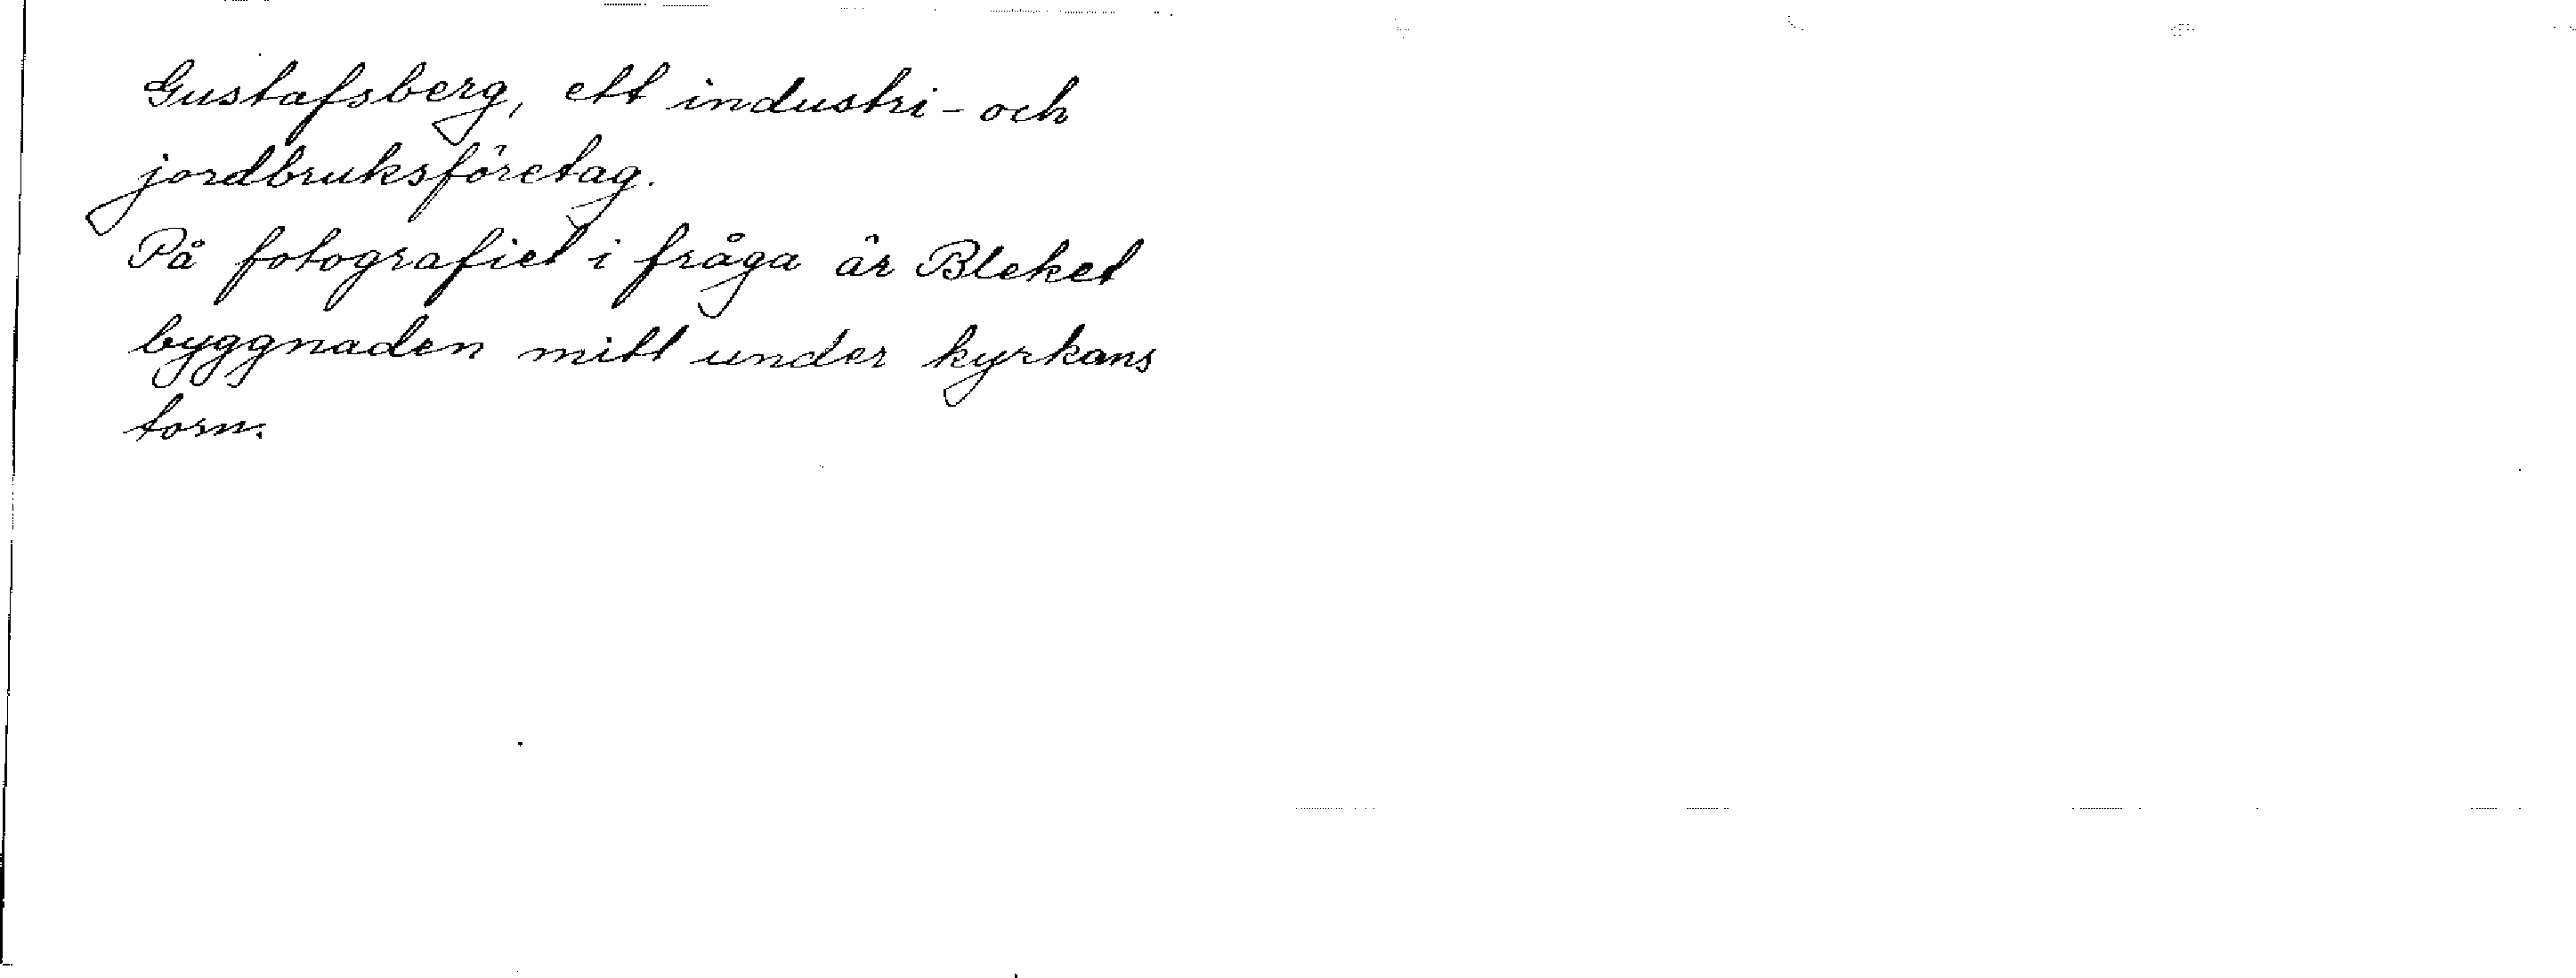 Gustafsberg, ett industri- och
jordbruksföretag.
På fotografiet i fråga är Bleket
byggnaden mitt under kyrkans
torn.